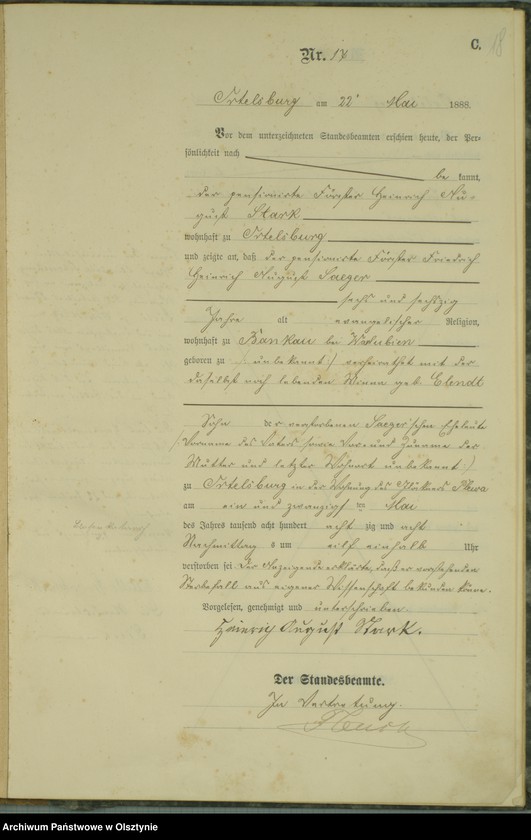 C.
18
Nr. 17
Ortelsburg am 22' Mai 1888.
Vor dem unterzeichneten Standesbeamten erschien heute, der Per-
sönlichkeit nach
be kannt,
der pensionirte Förster Heinrich Au-
gust Stark
wohnhaft zu Ortelsburg
und zeigte an, daß der pensionirte Förster Friedrich
Heinrich August Saeger
sechs und sechszig
Jahre alt evangelischer Religion,
wohnhaft zu Bankau bei Warlubien
geboren zu (: unbekannt :) verheirathet mit der
daselbst noch lebenden geb. Elendt
Sohn der verstorbenen Saeger'schen Eheleute
(: Vorname des Vaters sowie Vor- und Zuname der
Mutter und letzter Wohnort unbekannt :)
zu Ortelsburg in der Wohnung des Glöckners
am ein und zwanzigsten Mai
des Jahres tausend acht hundert acht zig und acht
Nachmittag s um eilf einhalb Uhr
verstorben sei. Der Anzeigende erklärte, daß er vorstehenden
Sterbefall aus eigener Wissenschaft bekunden könne.
Vorgelesen, genehmigt und unterschrieben.
Heinrich August Stark.
Der Standesbeamte.
In Vertretung.
Archiwum Państwowe w Olsztynie